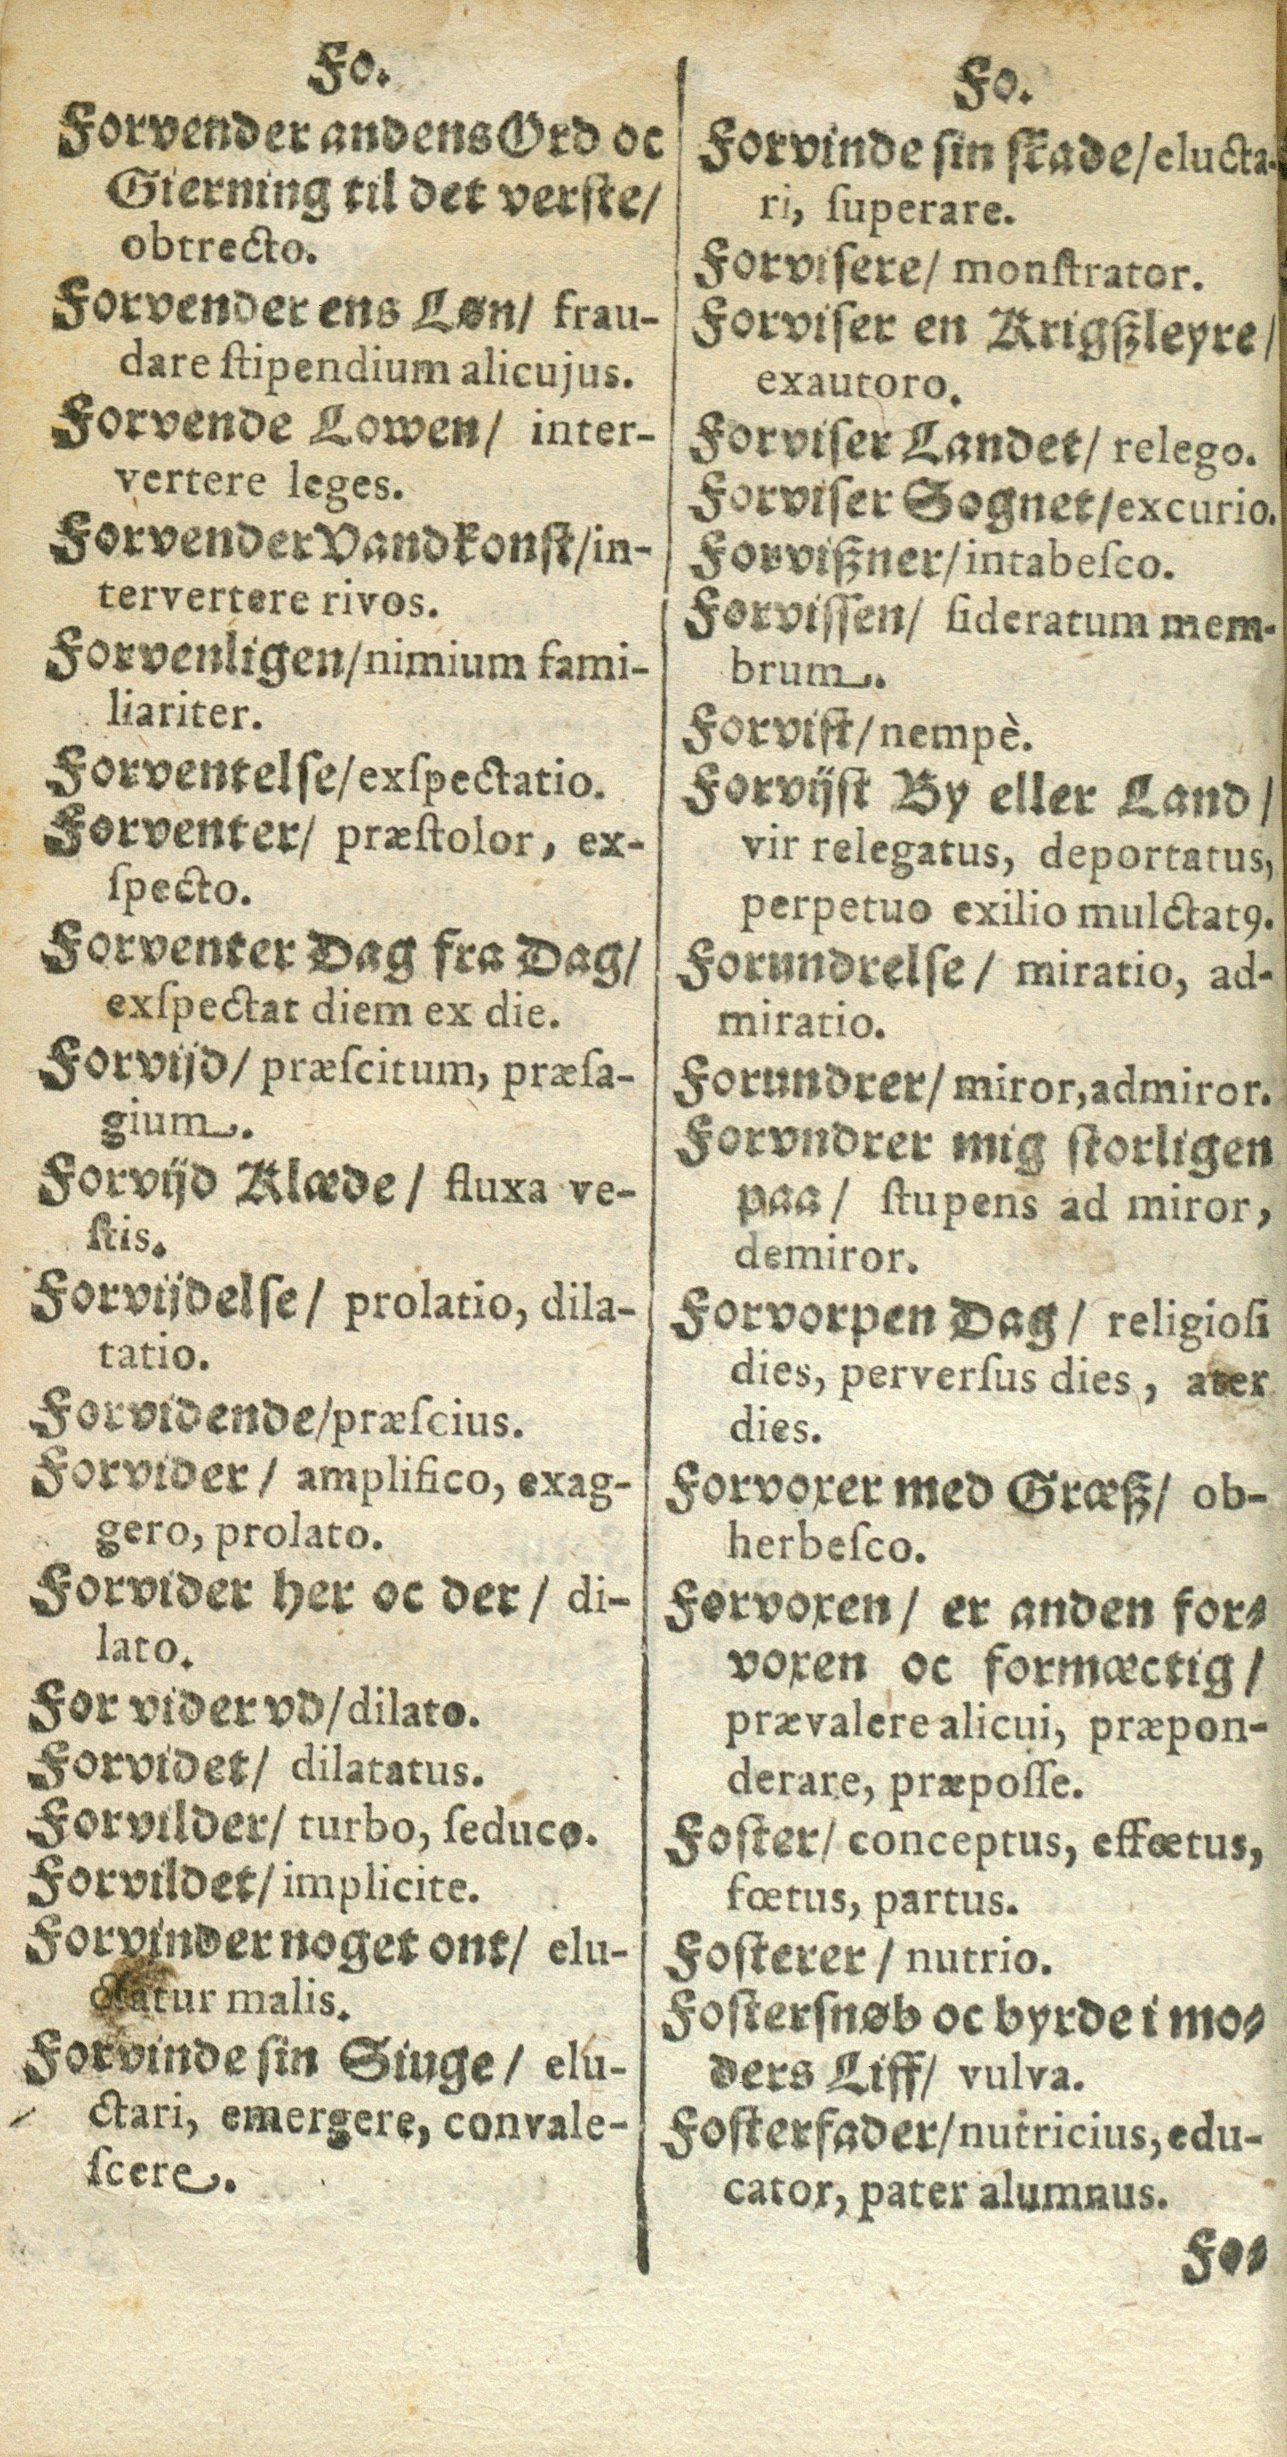 Fo.
Forvender andens Ord oc
Gierning til det verſte/
obtrecto.
Forvender ens Løn/ frau-
dare ſtipendium alicujus.
Forvende Lowen/ inter-
vertere leges.
Forvender Vandkonſt/in-
tervertere rivos.
Forvenligen/nimium fami-
liariter.
Forventelſe/exſpectatio.
Forventer/ præſtolor, ex-
ſpecto.
Forventer Dag fra Dag/
exſpectat diem ex die.
Forvijd/ præſcitum, præſa-
gium.
Forvijd Klæde/ fluxa ve-
ſtis.
Forvijdelſe/ prolatio, dila-
tatio.
Forvidende/præſcius.
Forvider/ amplifico, exag-
gero, prolato.
Forvider her oc der/ di-
lato.
For vider vd/dilato.
Forvidet/ dilatatus.
Forvilder/ turbo, ſeduco.
Forvildet/implicite.
Forvinder noget ont/ elu-
ctatur malis.
Forvinde ſin Siuge/ elu-
ctari, emergere, convale-
ſcere.
Fo.
Forvinde ſin ſkade/elucta-
ri, ſuperare.
Forviſere/ monſtrator.
Forviſer en Krigßleyre/
exautoro.
Forviſer Landet/ relego.
Forviſer Sognet/excurio.
Forvißner/intabeſco.
Forviſſen/ ſideratum mem-
brum.
Forviſt/nempè.
Forvijſt By eller Land/
vir relegatus, deportatus,
perpetuo exilio mulctatꝰ.
Forundrelſe/ miratio, ad-
miratio.
Forundrer/ miror,admiror.
Forvndrer mig ſtorligen
paa/ ſtupens ad miror,
demiror.
Forvorpen Dag/ religioſi
dies, perverſus dies, ater
dies.
Forvoxer med Græß/ ob-
herbeſco.
Forvoxen/ er anden for⸗
voxen oc formæctig/
prævalere alicui, præpon-
derare, præpoſſe.
Foſter/ conceptus, effœtus,
fœtus, partus.
Foſterer/ nutrio.
Foſterſnøb oc byrde i mo⸗
ders Liff/ vulva.
Foſterfader/nutricius, edu-
cator, pater alumnus.
Fo⸗